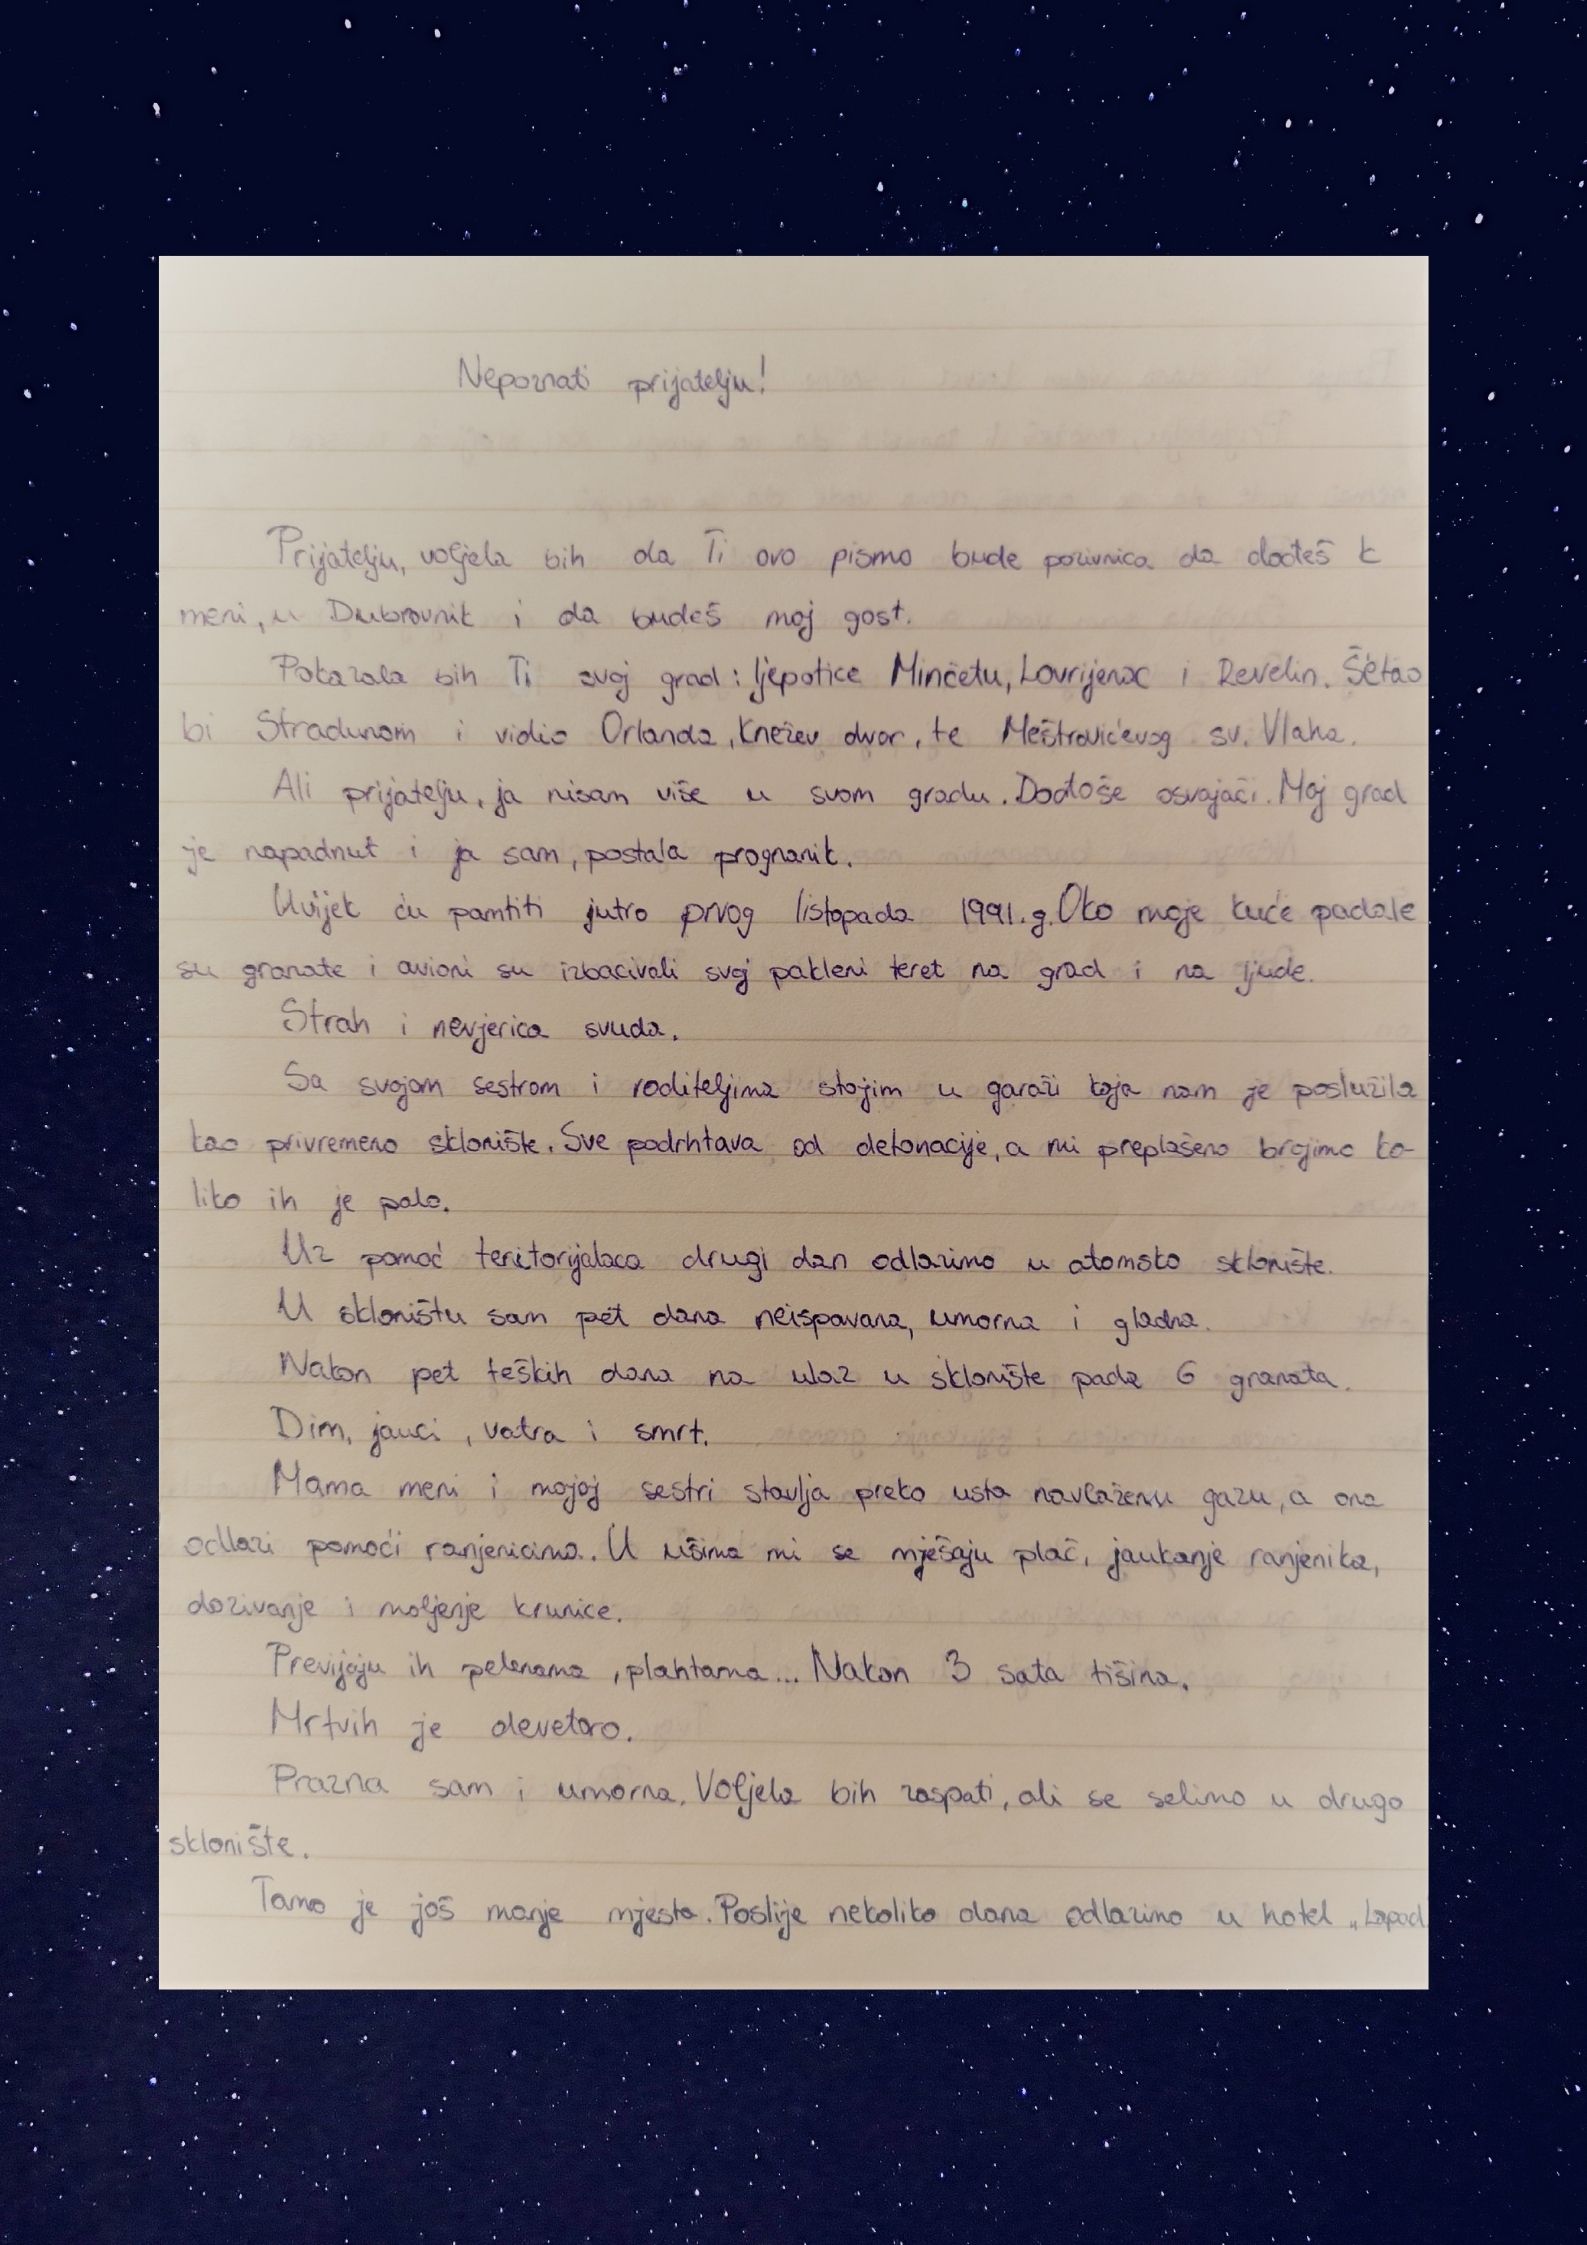 Nepoznati prijatelju!
Prijatelju, voljela bih da Ti ovo pismo bude pozivnica da dođeš k
meni, u Dubrovnik i da budeš moj gost.
Pokazala bih Ti svoj grad: ljepotice Minčetu, Lovrijenac i Revelin. Šetao
bi Stradunom i vidio Orlanda, Knežev dvor, te Meštrovićevog sv. Vlaha.
Ali prijatelju, ja nisam više u svom gradu. Dođoše osvajači. Moj grad
je napadnut i ja sam, postala prognanik.
Uvijek ću pamtiti jutro prvog listopada 1991.g. Oko moje kuće padale
su granate i avioni su izbacivali svoj pakleni teret na grad i na ljude.
Strah i nevjerica svuda.
Sa svojom sestrom i roditeljima stojim u garaži koja nam je poslužila
kao privremeno sklonište. Sve podrhtava od detonacije, a mi preplašeno brojimo ko-
liko ih je palo.
Uz pomoć teritorijalaca drugi dan odlazimo u atomsko sklonište.
U skloništu sam pet dana neispavana, umorna i gladna.
Nakon pet teških dana na ulaz u sklonište pada 6 granata.
Dim, jauci, vatra i smrt.
Mama meni i mojoj sestri stavlja preko usta navlaženu gazu, a ona
odlazi pomoći ranjenicima. U ušima mi se mješaju plač, jaukanje ranjenika,
dozivanje i moljenje krunice.
Previjaju ih pelenama, plahtama... Nakon 3 sata tišina.
Mrtvih je devetoro.
Prazna sam i umorna. Voljela bih zaspati, ali se selimo u drugo
sklonište.
Tamo je još manje mjesta. Poslije nekoliko dana odlazimo u hotel „Lapad